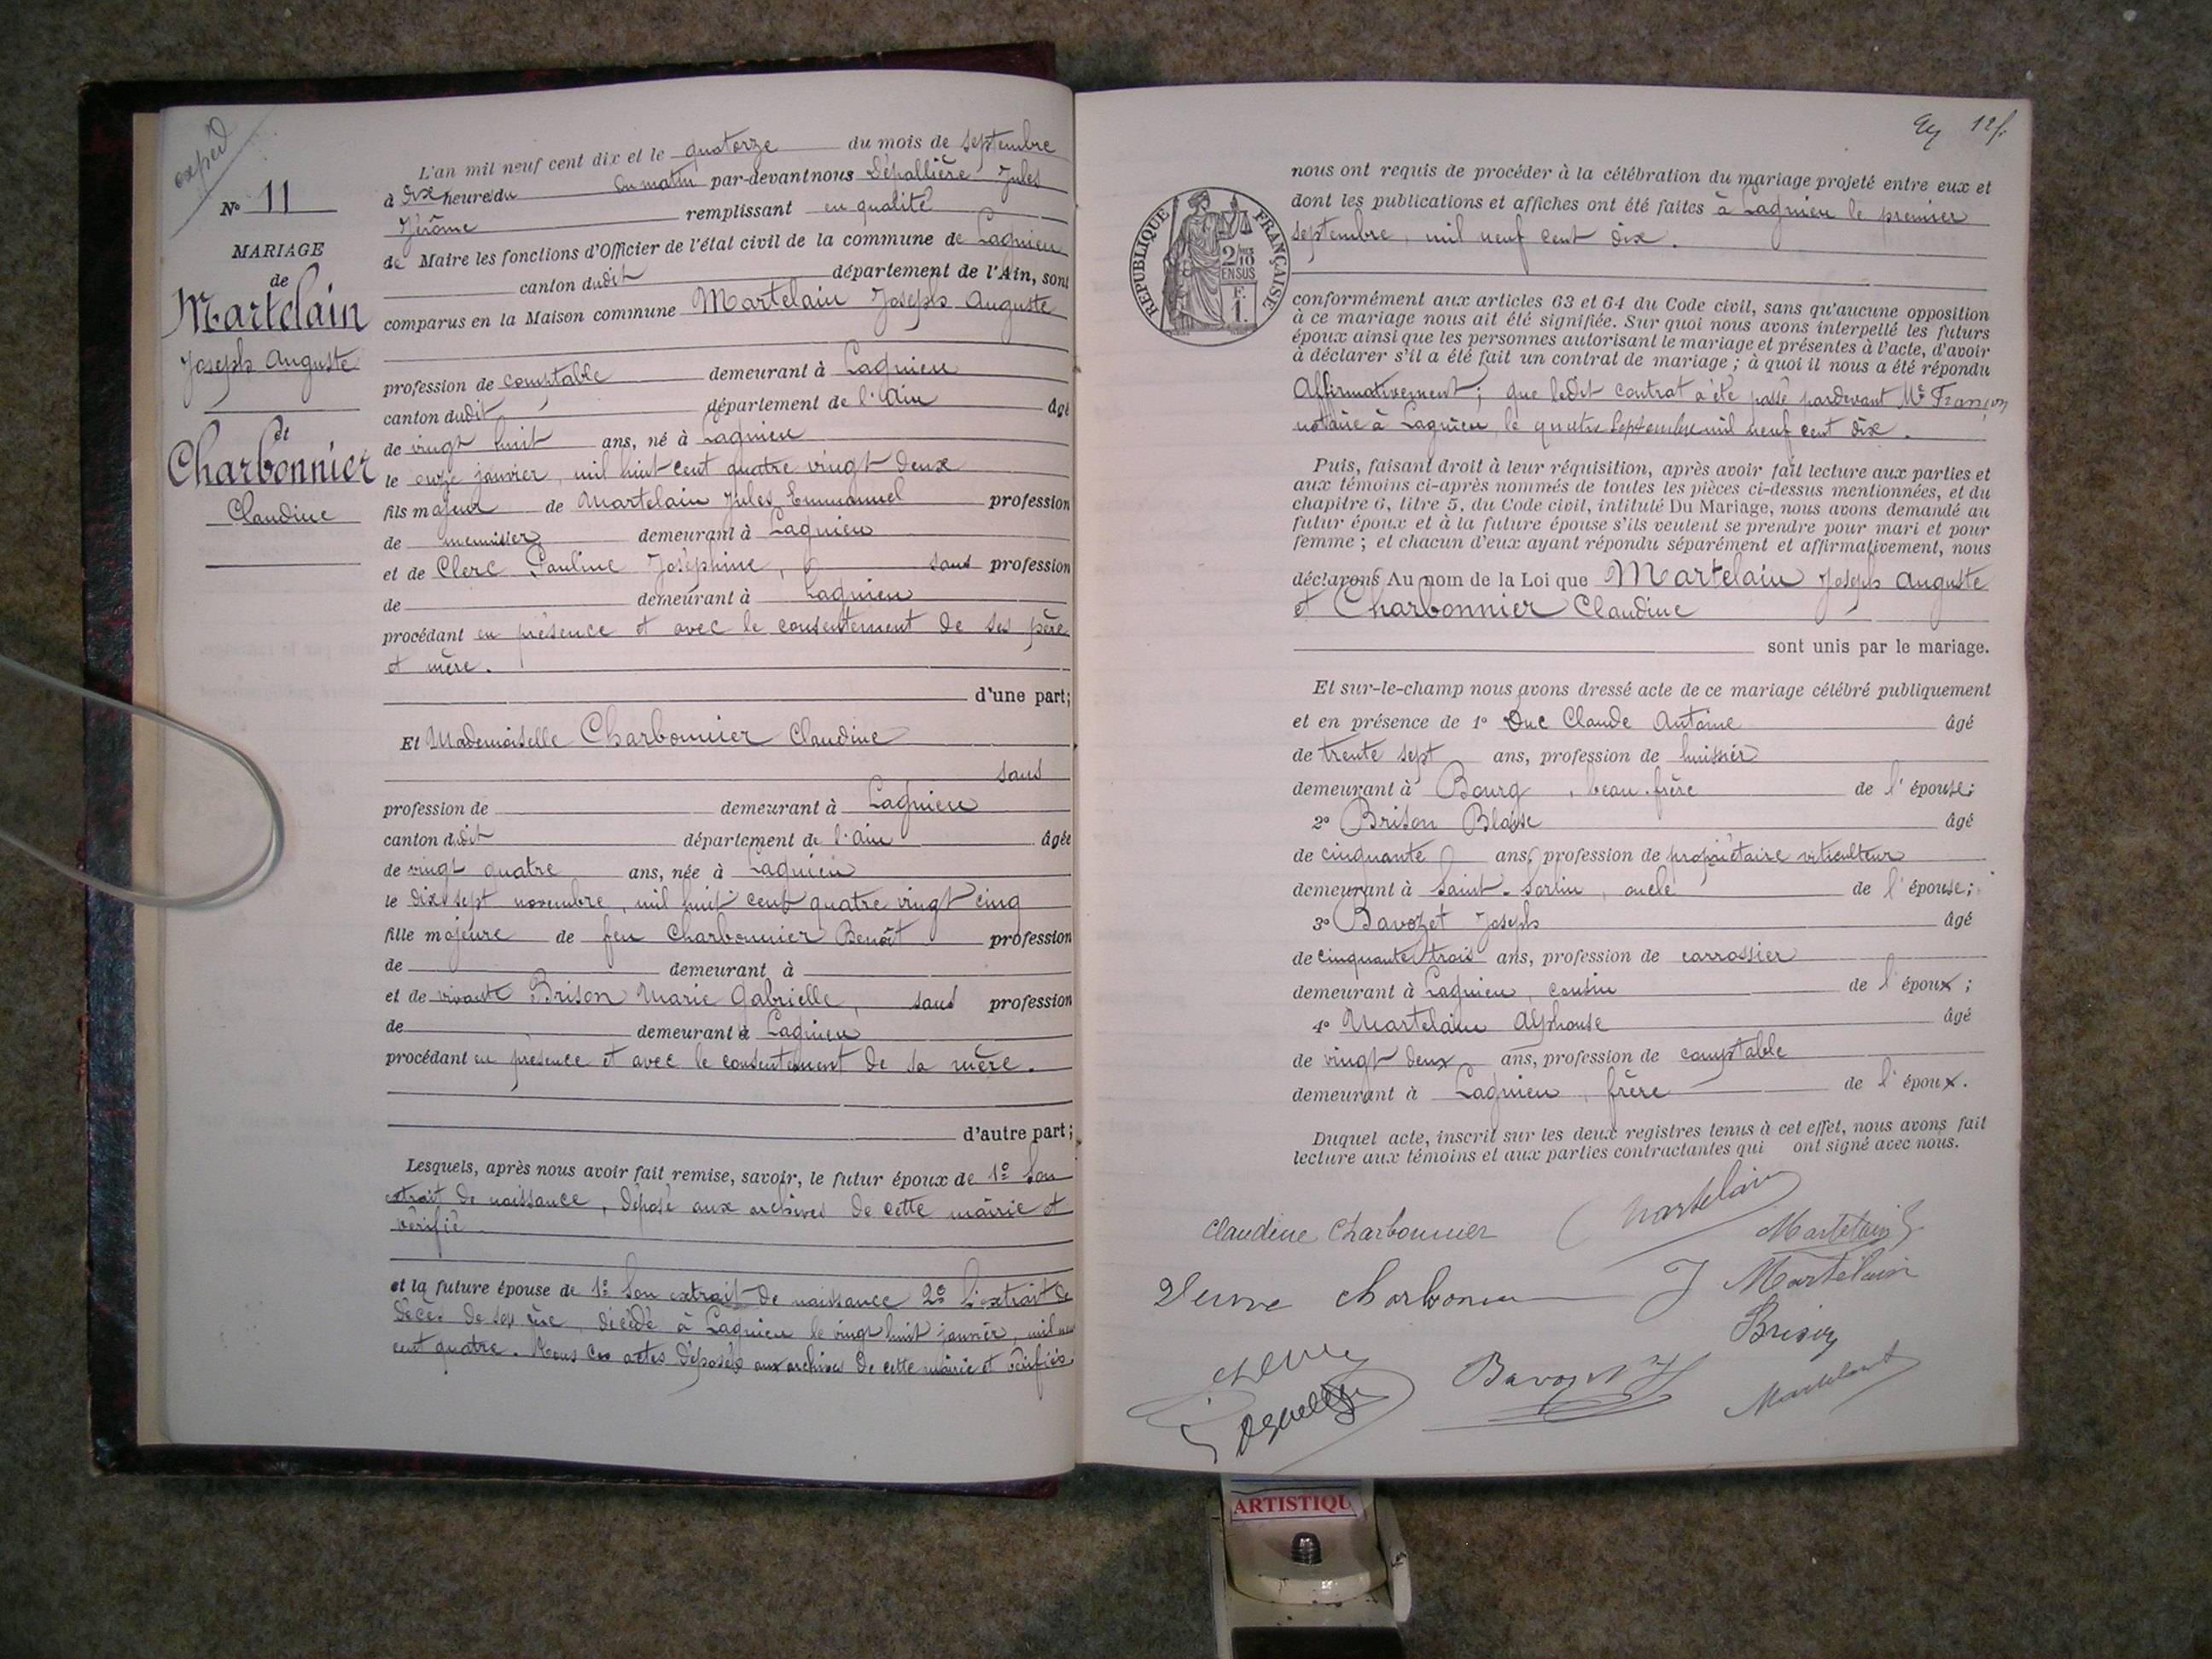 expéd
N° 11
MARIAGE
de
Martelain
Joseph Auguste
et
Charbonnier
Claudine
L'an mil neuf cent dix et le quatorze du mois de septembre
à dix heures du du matin par-devant nous Dépallière Jules
Jérôme remplissant en qualité
de Maire les fonctions d'Officier de l'état civil de la commune de Lagnieu
canton dudit département de l'Ain, sont
comparus en la Maison commune Martelain Joseph Auguste
profession de comptable demeurant à Lagnieu
canton dudit département de l'Ain âgé
de vingt huit ans, né à Lagnieu
le onze janvier, mil huit cent quatre vingt deux
fils majeur de Martelain Jules Emmanuel profession
de menuisier demeurant à Lagnieu
et de Clerc Pauline Joséphine, sans profession
de demeurant à Lagnieu
procédant en présence et avec le consentement de ses père
et mère.
d'une part;
Et Mademoiselle Charbonnier Claudine
sans
profession de demeurant à Lagnieu
canton dudit département de l'Ain âgée
de vingt quatre ans, née à Lagnieu
le dix sept novembre, mil huit cent quatre vingt cinq
fille majeure de feu Charbonnier Benoît profession
de demeurant à
et de vivante Brison Marie Gabrielle, sans profession
de demeurant à Lagnieu
procédant en présence et avec le consentement de sa mère.
d'autre part;
Lesquels, après nous avoir fait remise, savoir, le futur époux de 1° Son
extrait de naissance, déposé aux archives de cette mairie et
vérifié
et la future épouse de 1° Son extrait de naissance 2° L'extrait de
décès de son père, décédé à Lagnieu le vingt huit janvier, mil neuf
cent quatre. Tous ces actes déposés aux archives de cette mairie et vérifiés
12f.
RÉPUBLIQUE FRANÇAISE
2/10
EN SUS
F.
1.
nous ont requis de procéder à la célébration du mariage projeté entre eux et
dont les publications et affiches ont été faites à Lagnieu le premier
septembre, mil neuf cent dix.
conformément aux articles 63 et 64 du Code civil, sans qu'aucune opposition
à ce mariage nous ait été signifiée. Sur quoi nous avons interpellé les futurs
époux ainsi que les personnes autorisant le mariage et présentes à l'acte, d'avoir
à déclarer s'il a été fait un contrat de mariage ; à quoi il nous a été répondu
Affirmativement; que ledit contrat a été passé pardevant Me Françon
notaire à Lagnieu, le quatre septembre mil neuf cent dix.
Puis, faisant droit à leur réquisition, après avoir fait lecture aux parties et
aux témoins ci-après nommés de toutes les pièces ci-dessus mentionnées, et du
chapitre 6, titre 5, du Code civil, intitulé Du Mariage, nous avons demandé au
futur époux et à la future épouse s'ils veulent se prendre pour mari et pour
femme ; et chacun d'eux ayant répondu séparément et affirmativement, nous
déclarons Au nom de la Loi que Martelain Joseph Auguste
et Charbonnier Claudine
sont unis par le mariage.
Et sur-le-champ nous avons dressé acte de ce mariage célébré publiquement
et en présence de 1° Duc Claude Antoine âgé
de trente sept ans, profession de huissier
demeurant à Bourg, beau-frère de l'épouse;
2° Brison Blaise âgé
de cinquante ans, profession de propriétaire viticulteur
demeurant à Saint-Sorlin, oncle de l'épouse;
3° Bavozet Joseph âgé
de cinquante trois ans, profession de carrossier
demeurant à Lagnieu, cousin de l'époux ;
4° Martelain Alphonse âgé
de vingt deux ans, profession de comptable
demeurant à Lagnieu, frère de l'époux.
Duquel acte, inscrit sur les deux registres tenus à cet effet, nous avons fait
lecture aux témoins et aux parties contractantes qui ont signé avec nous.
Claudine Charbonnier Martelain
Martelain
Veuve Charbonnier J Martelain
Brison
Bavozet J Martelain
ARTISTIQU